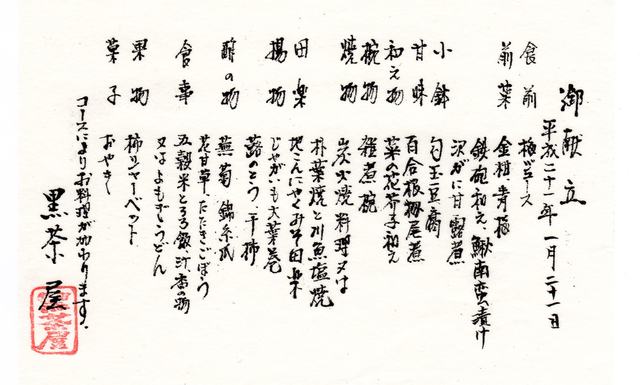 御献立
平成二十一年一月二十一日
食前 梅ジュース
前菜 金柑、青梅
鉄砲和え、鰍南蛮漬け
沢がに甘露煮
小鉢 勾玉豆腐
甘味 百合根鹿の子煮
和え物 菜の花芥子和え
椀物 雑煮椀
焼物 炭火焼料理又は
朴葉焼と川魚塩焼
田楽 地こんにゃくみそ田楽
揚物 じゃがいも大葉巻
蕗のとう、干柿
酢の物 蕪菊錦糸瓜
花甘草、たたきごぼう
食事 五穀米とろろ飯、汁、香の物
又はよもぎうどん
果物 柿シャーベット
菓子 おやき
コースによりお料理が加わります。
黒茶屋
黒茶屋